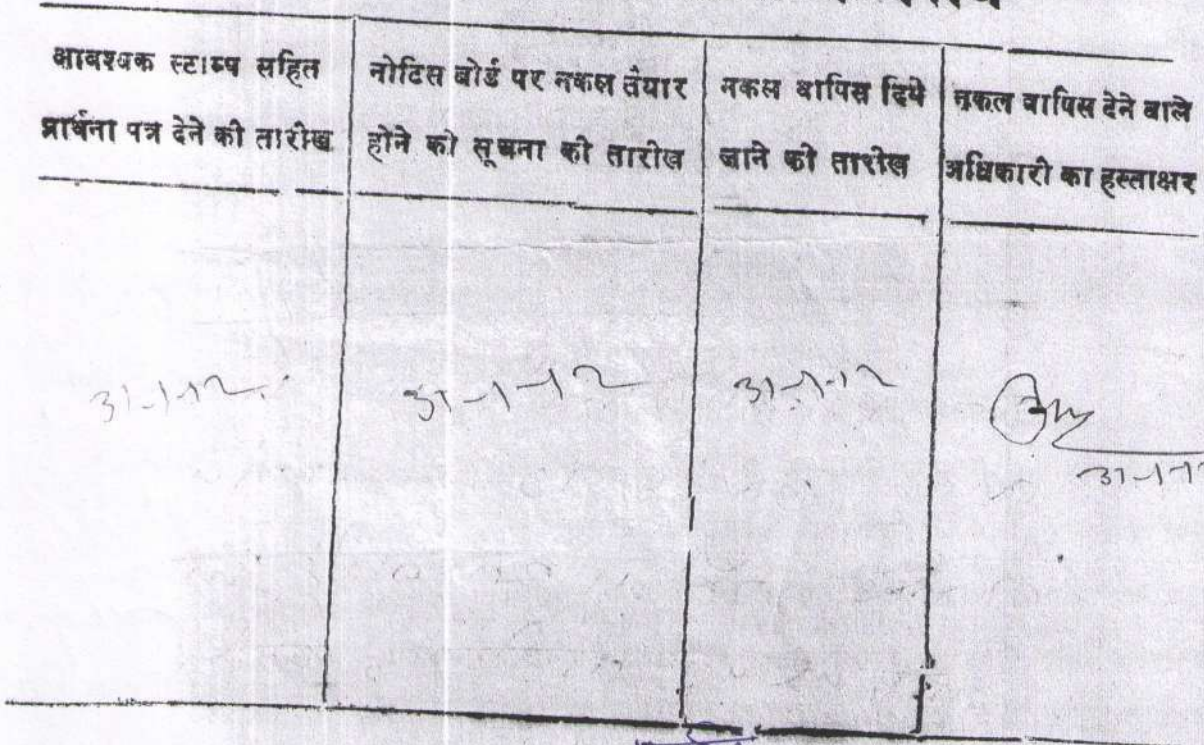 आवश्यक स्टाम्प सहित
प्रार्थना पत्र देने की तारीख
नोटिस बोर्ड पर नकल तैयार
होने की सूचना की तारीख
नकल वापिस दिये
जाने की तारीख
नकल वापिस देने वाले
अधिकारी का हस्ताक्षर
31-1-12
31-1-12
31-1-12
31-1-12